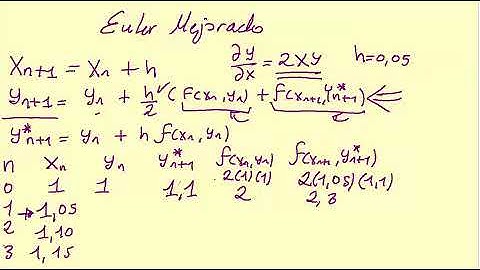 Euler Mejorado
Xn+1 = Xn + h   ∂y/∂x = 2XY   h=0,05
yn+1 = yn + h/2 (f(xn,yn) + f(xn+1,y*n+1))
y*n+1 = yn + h f(xn,yn)
n Xn yn y*n+1 f(xn,yn) f(xn+1,y*n+1)
0 1 1 1,1 2(1)(1) 2(1,05)(1,1)
2 2,3
1 → 1,05
2 1,10
3 1,15